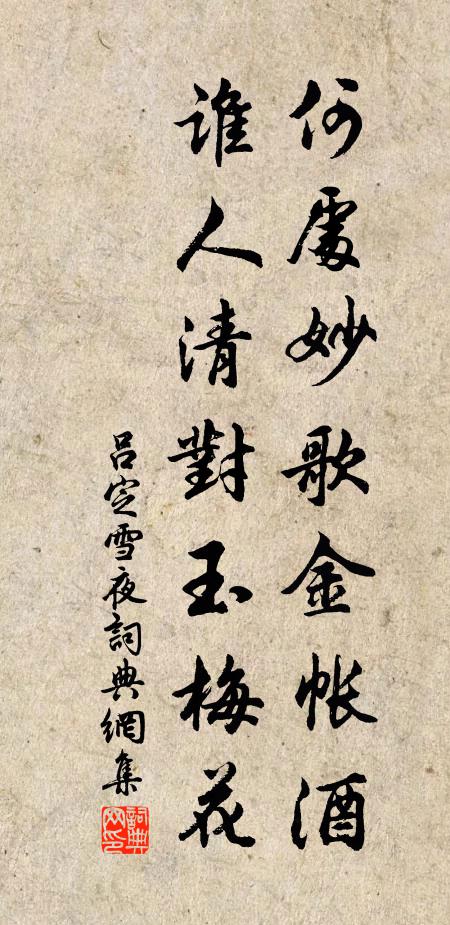 何處妙歌金帳酒
誰人清對玉梅花
吕定雪夜詞典網集
詞典網印